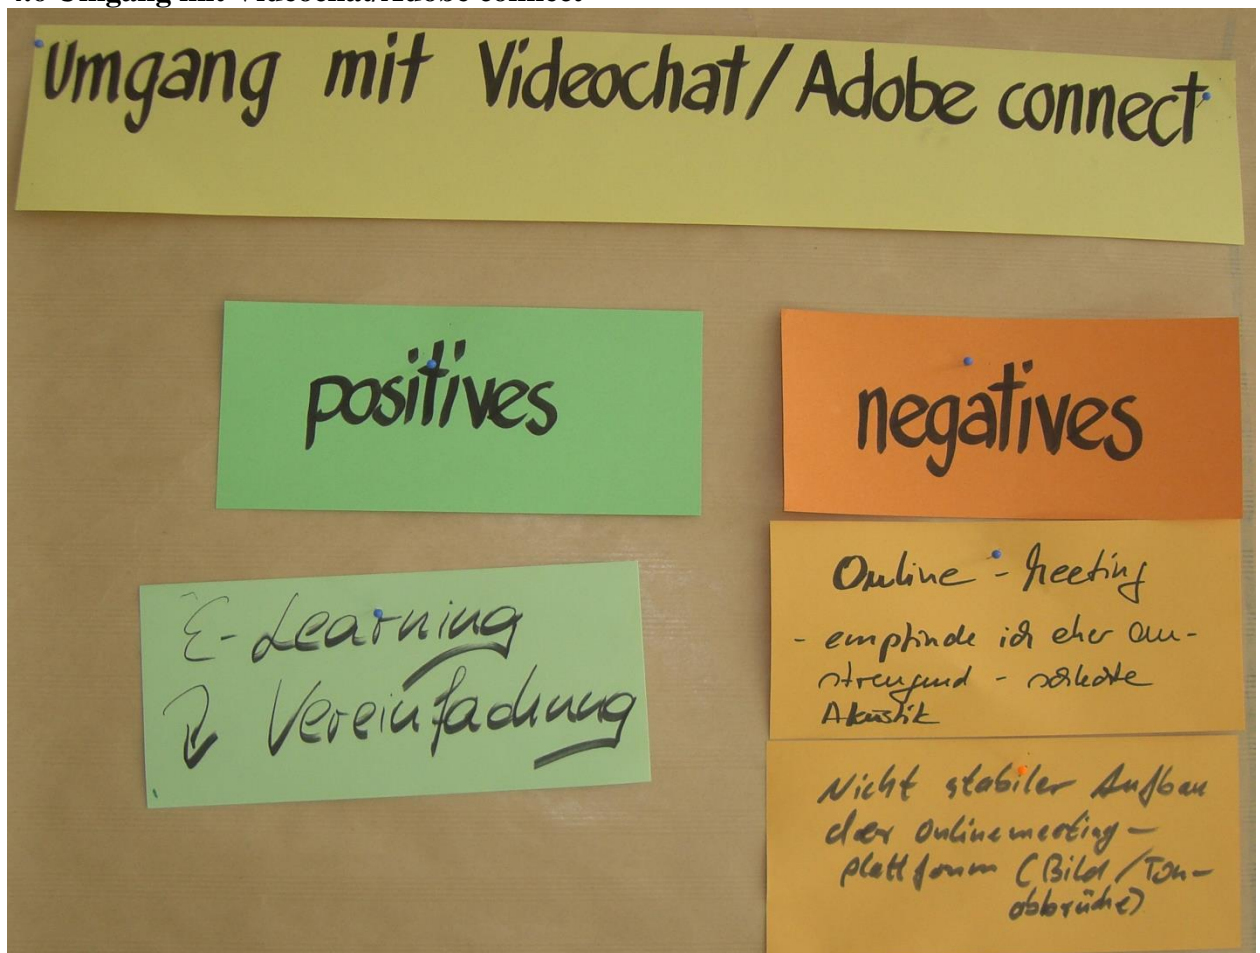 4.6 Umgang mit Videochat/Adobe connect
Umgang mit Videochat/Adobe connect
positives
negatives
E-Learning
Vereinfachung
Online-Meeting
- empfinde ich eher an-
strengend - schlechte
Akustik
Nicht stabiler Aufbau
der Onlinemeeting-
plattform (Bild/Ton-
abbrüche)